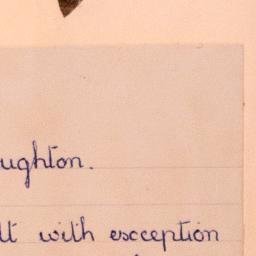 ughton.
lt with exception